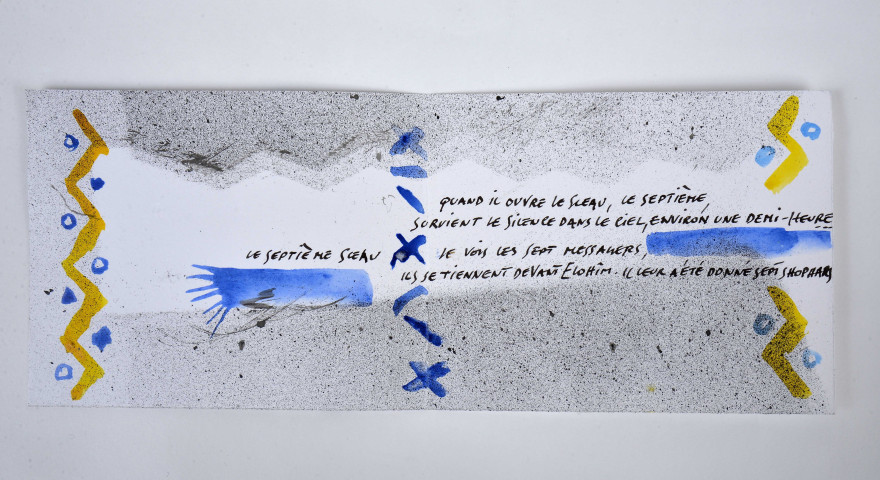 LE SEPTIÈME SCEAU
QUAND IL OUVRE LE SCEAU, LE SEPTIÈME,
SURVIENT LE SILENCE DANS LE CIEL, ENVIRON UNE DEMI-HEURE
JE VOIS LES SEPT MESSAGERS,
ILS SE TIENNENT DEVANT ELOHIM. IL LEUR A ÉTÉ DONNÉ SEPT SHOPHARS